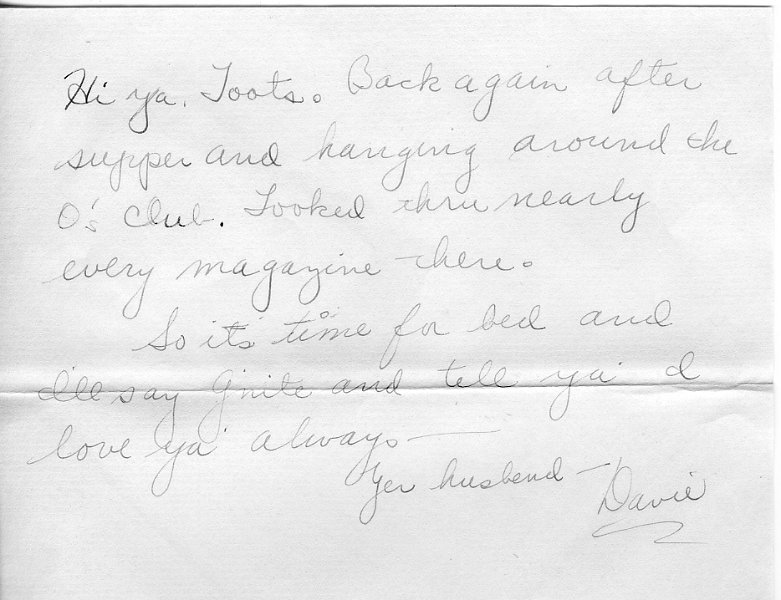 Hi ya, Toots. Back again after
supper and hanging around the
O's Club. Looked thru nearly
every magazine there.
So it's time for bed and
I'll say G'nite and tell ya' I
love ya' always—
Yer husbend—
Davie